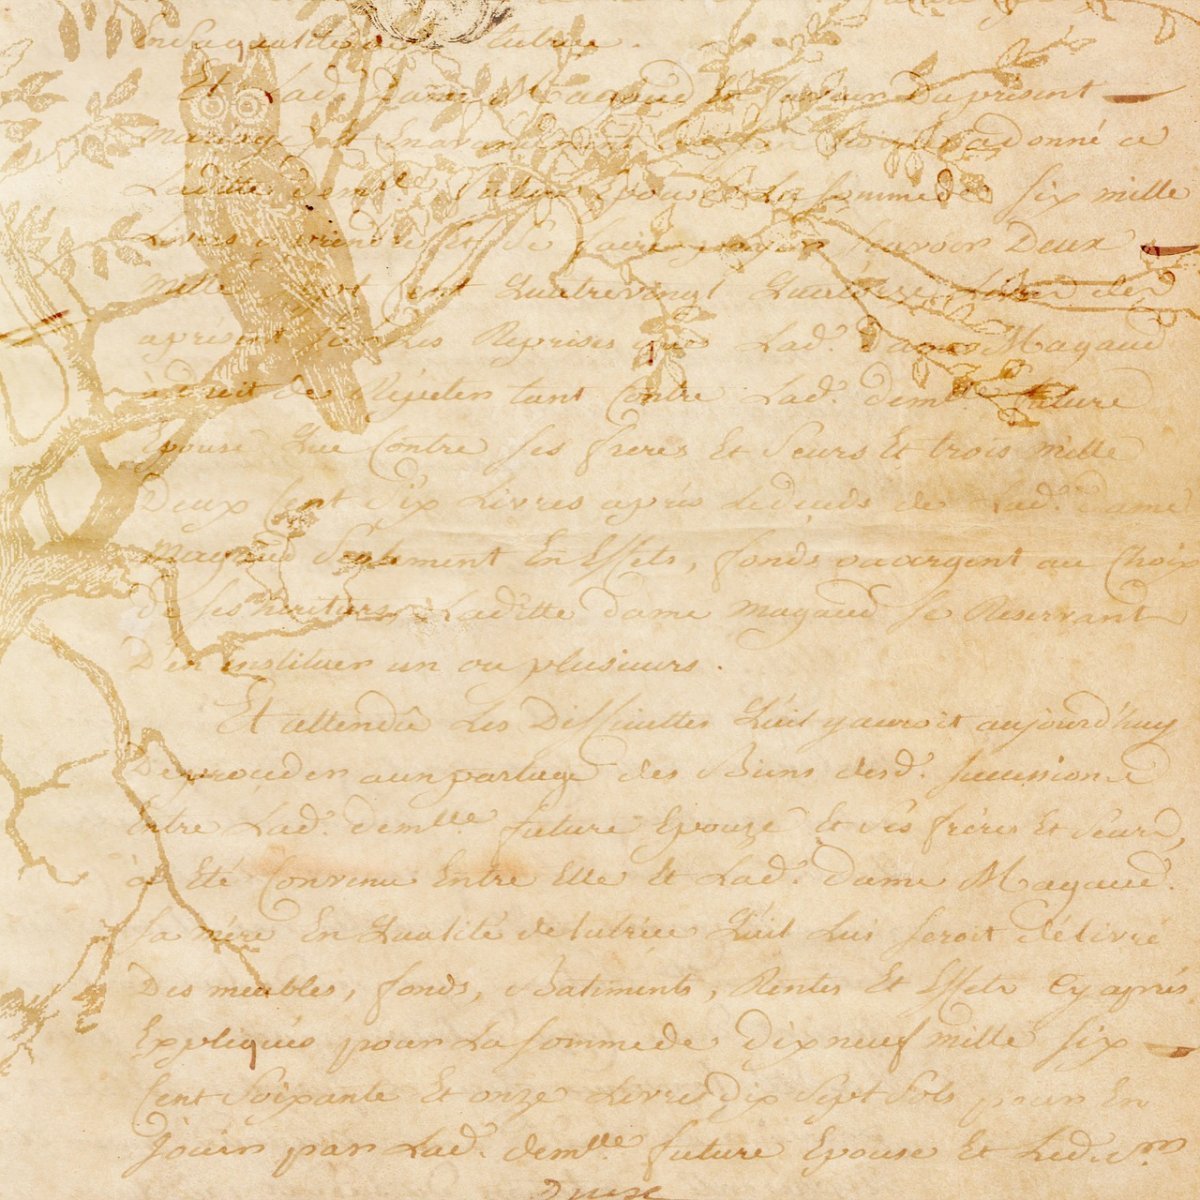 En Sa qualité de tutrice.
Et Lad.e Dame Magaud Et faveur Du présent
mariage Et En avancement donné ce
Laditte demlle future Epouse La Somme de Six mille
Livres a prendre Et Se faire payer Scavoir Deux
Mille Sept Cent Quatrevingt Quatorze Livres des
aprésent Sur Les Reprises que Lad.e Dame Magaud
à droit de Répeter tant Contre Lad.e demlle future
Epouse Que Contre Ses freres Et Seurs Et trois mille
Deux Cent Six Livres après Le déceds de Lad.e dame
Magaud Seulement En Effets, fonds ou argent au Choix
De Ses heritiers Laditte dame Magaud Se Reservant
D'en instituer un ou plusieurs.
Et attendû Les Difficultes Qu'il y auroit aujourd'huy
De proceder a un partage des Biens desd. Successions
Entre Lad.e demlle future Epouze Et Ses fréres Et Seurs,
à Eté Convenu Entre Elle Et Lad.e dame Magaud.
Sa mère En Qualité de tutrice Qu'il Lui Seroit délivré
Des meubles, fonds, Batiments, Rentes Et Effets Cy après
Expliqués pour La Somme de Dix neuf mille Six
Cent Soixante Et onze Livres Dix Sept Sols pour En
Jouir par Lad.e demlle future Epouse Et Led.